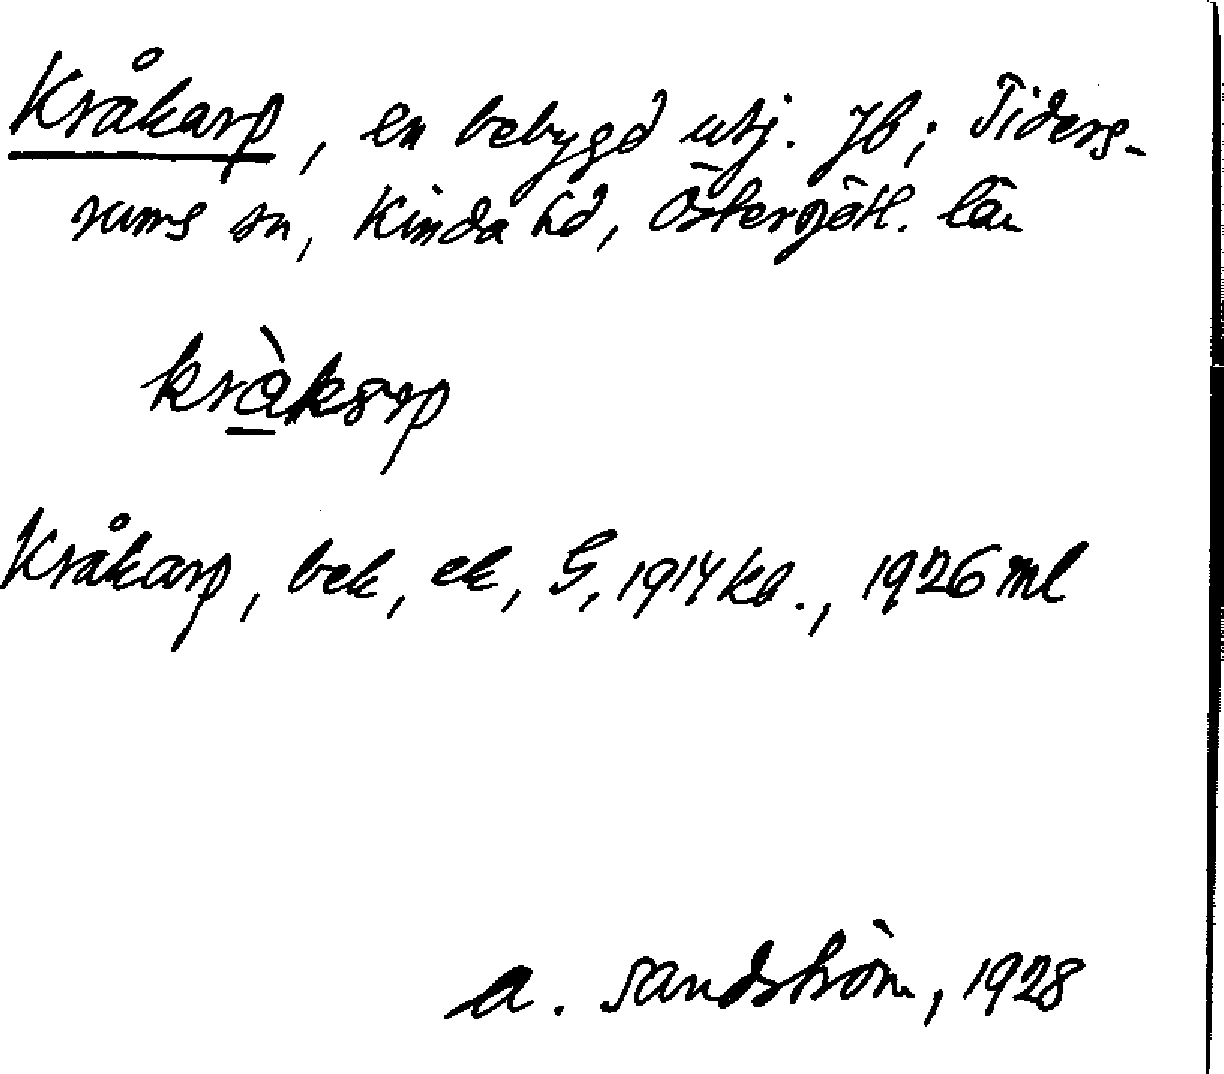 Kråkarp, en bebygd utj. Jb; Tiders-
rums sn, Kinda hd, Östergötl. län
kràkarp
Kråkarp, bek, ek, G, 1914 kd., 1926 ml
A. Sandström, 1928